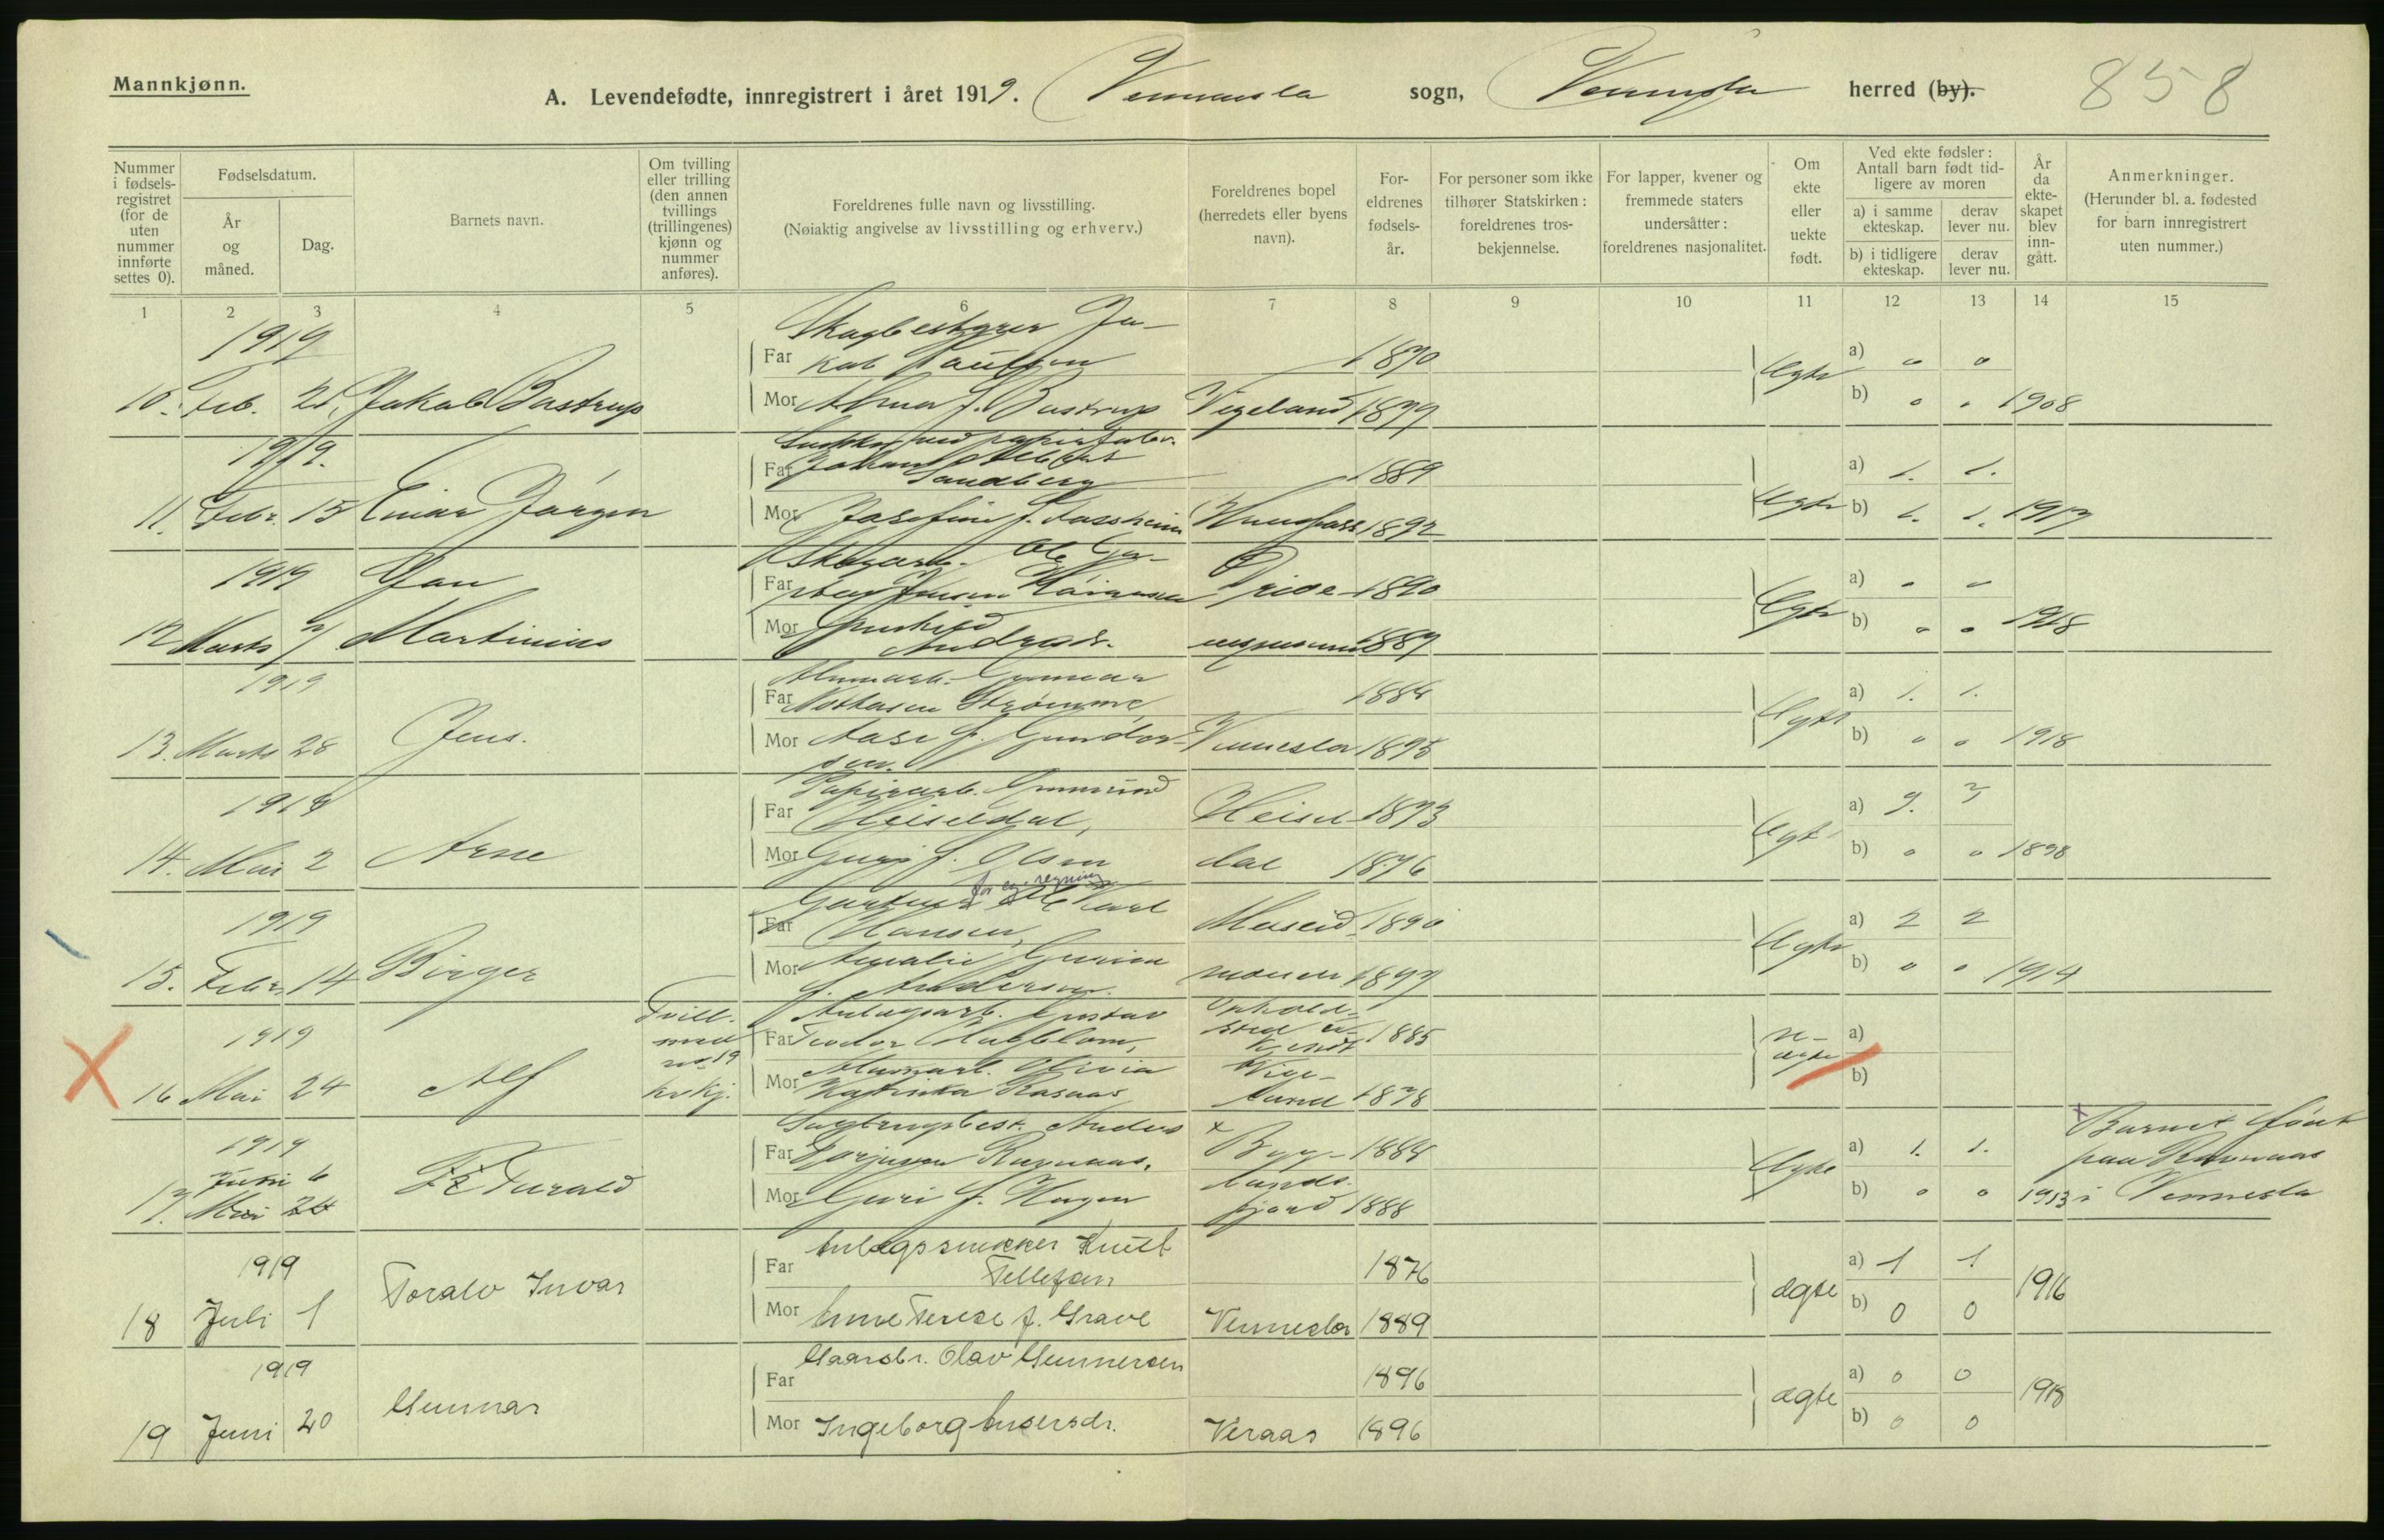 Mannkjønn.
A. Levendefødte, innregistrert i året 1919. Vennesla sogn, Vennesla herred (by). 858
Nummer i fødsels-registret (for de uten nummer innførte settes 0).
Fødselsdatum.
År og måned.
Dag.
Barnets navn.
Om tvilling eller trilling (den annen tvillings (trillingenes) kjønn og nummer anføres).
Foreldrenes fulle navn og livsstilling.
(Nøiaktig angivelse av livsstilling og erhverv.)
Foreldrenes bopel (herredets eller byens navn).
For-eldrenes fødsels-år.
For personer som ikke tilhører Statskirken: foreldrenes tros-bekjennelse.
For lapper, kvener og fremmede staters undersåtter: foreldrenes nasjonalitet.
Om ekte eller uekte født.
Ved ekte fødsler: Antall barn født tid-ligere av moren
a) i samme ekteskap.
derav lever nu.
b) i tidligere ekteskap.
derav lever nu.
År da ekte-skapet blev inn-gått.
Anmerkninger.
(Herunder bl. a. fødested for barn innregistrert uten nummer.)
1 2 3 4 5 6 7 8 9 10 11 12 13 14 15
1919 Skogbestyrer Ja-
Far kob 1890 a) 0 0
10. Feb. 21. Jakob Bastrup Mor f. Bastrup Vigeland 1879 Egte b) 0 0 1908
1919.
Far Johan Albert Sandberg 1889 a) 1. 1.
11. Febr. 15 Einar Jørgen Mor Josefine f. 1892 Egte b) 1. 1. 1917
1919 Jan Skogarb. Ole
Far Jensen 1890 a) 0 0
12 Marts 7 Martinius Mor 1889 Egte b) 0 0 1918
1919 Gunnar
Far Mathisen Strømme 1884 a) 1. 1.
13. Marts 28 Jens. Mor Aase f. Gundersen. Vennesla 1895 Egte b) 0 0 1918
1919 Papirarb. Gunmund
Far Heiseldal, Heisel- 1873 a) 9. 7
14. Mai 2 Arne Mor Guri f. Olsen dal 1876 Egte b) 0 0 1898
for eg. regning
1919 Gartner Karl
Far Hansen, Moseid- 1890 a) 2 2
15. Febr. 14 Birger Mor Amalie f. Andersen. moen 1897 Egte b) 0 0 1914
1919 Tvill. med no 19 kvkj. Anlægsarb. Gustav Ophold-
Far Teodor sted u- kjendt 1885 u- a)
16 Mai 24 Alf Mor Olivia Katrinka Rasaas Vige- land 1878 egte b)
1919 Sagbrugsbest. Anders x x Barnet født
Juni 6 Far Torjusen Ravnaas, Byg- 1884 a) 1. 1. paa Ravnaas
17. Mai 24 Turald Mor Guri f. Hagen lands- fjord 1888 Egte b) 0 0 1913 i Vennesla
1919 Anlægssnekker Knut
Far Tellefsen 1876 a) 1 1
18 Juli 1 Toralv Invar Mor Anne Terese f. Grave Vennesla 1889 ægte b) 0 0 1916
1919 Gaardbr. Olav Gunnersen
Far 1896 a) 0 0
19 Juni 20 Gunnar Mor Ingeborg Andersdr. Veraas 1896 ægte b) 0 0 1918